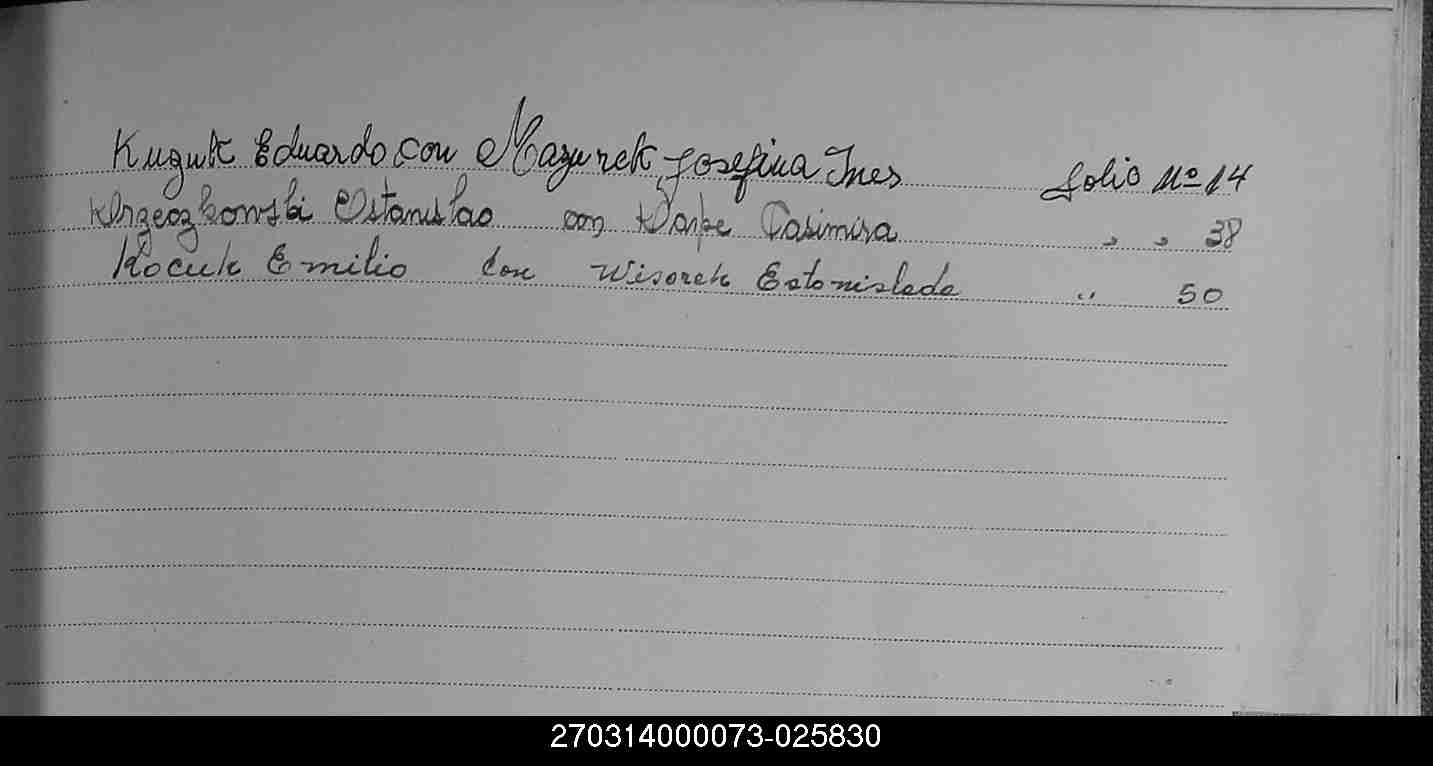 Kuguk Eduardo con Mazurek Josefina Ines folio Nº 14
Krzeczkowski Estanislao con Karpe Casimira " " 38
Kocuk Emilio con Wisorek Estonislada " 50
270314000073-025830